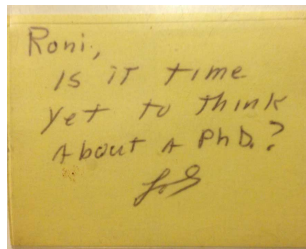 Roni,
Is it time
yet to think
About A PhD.?